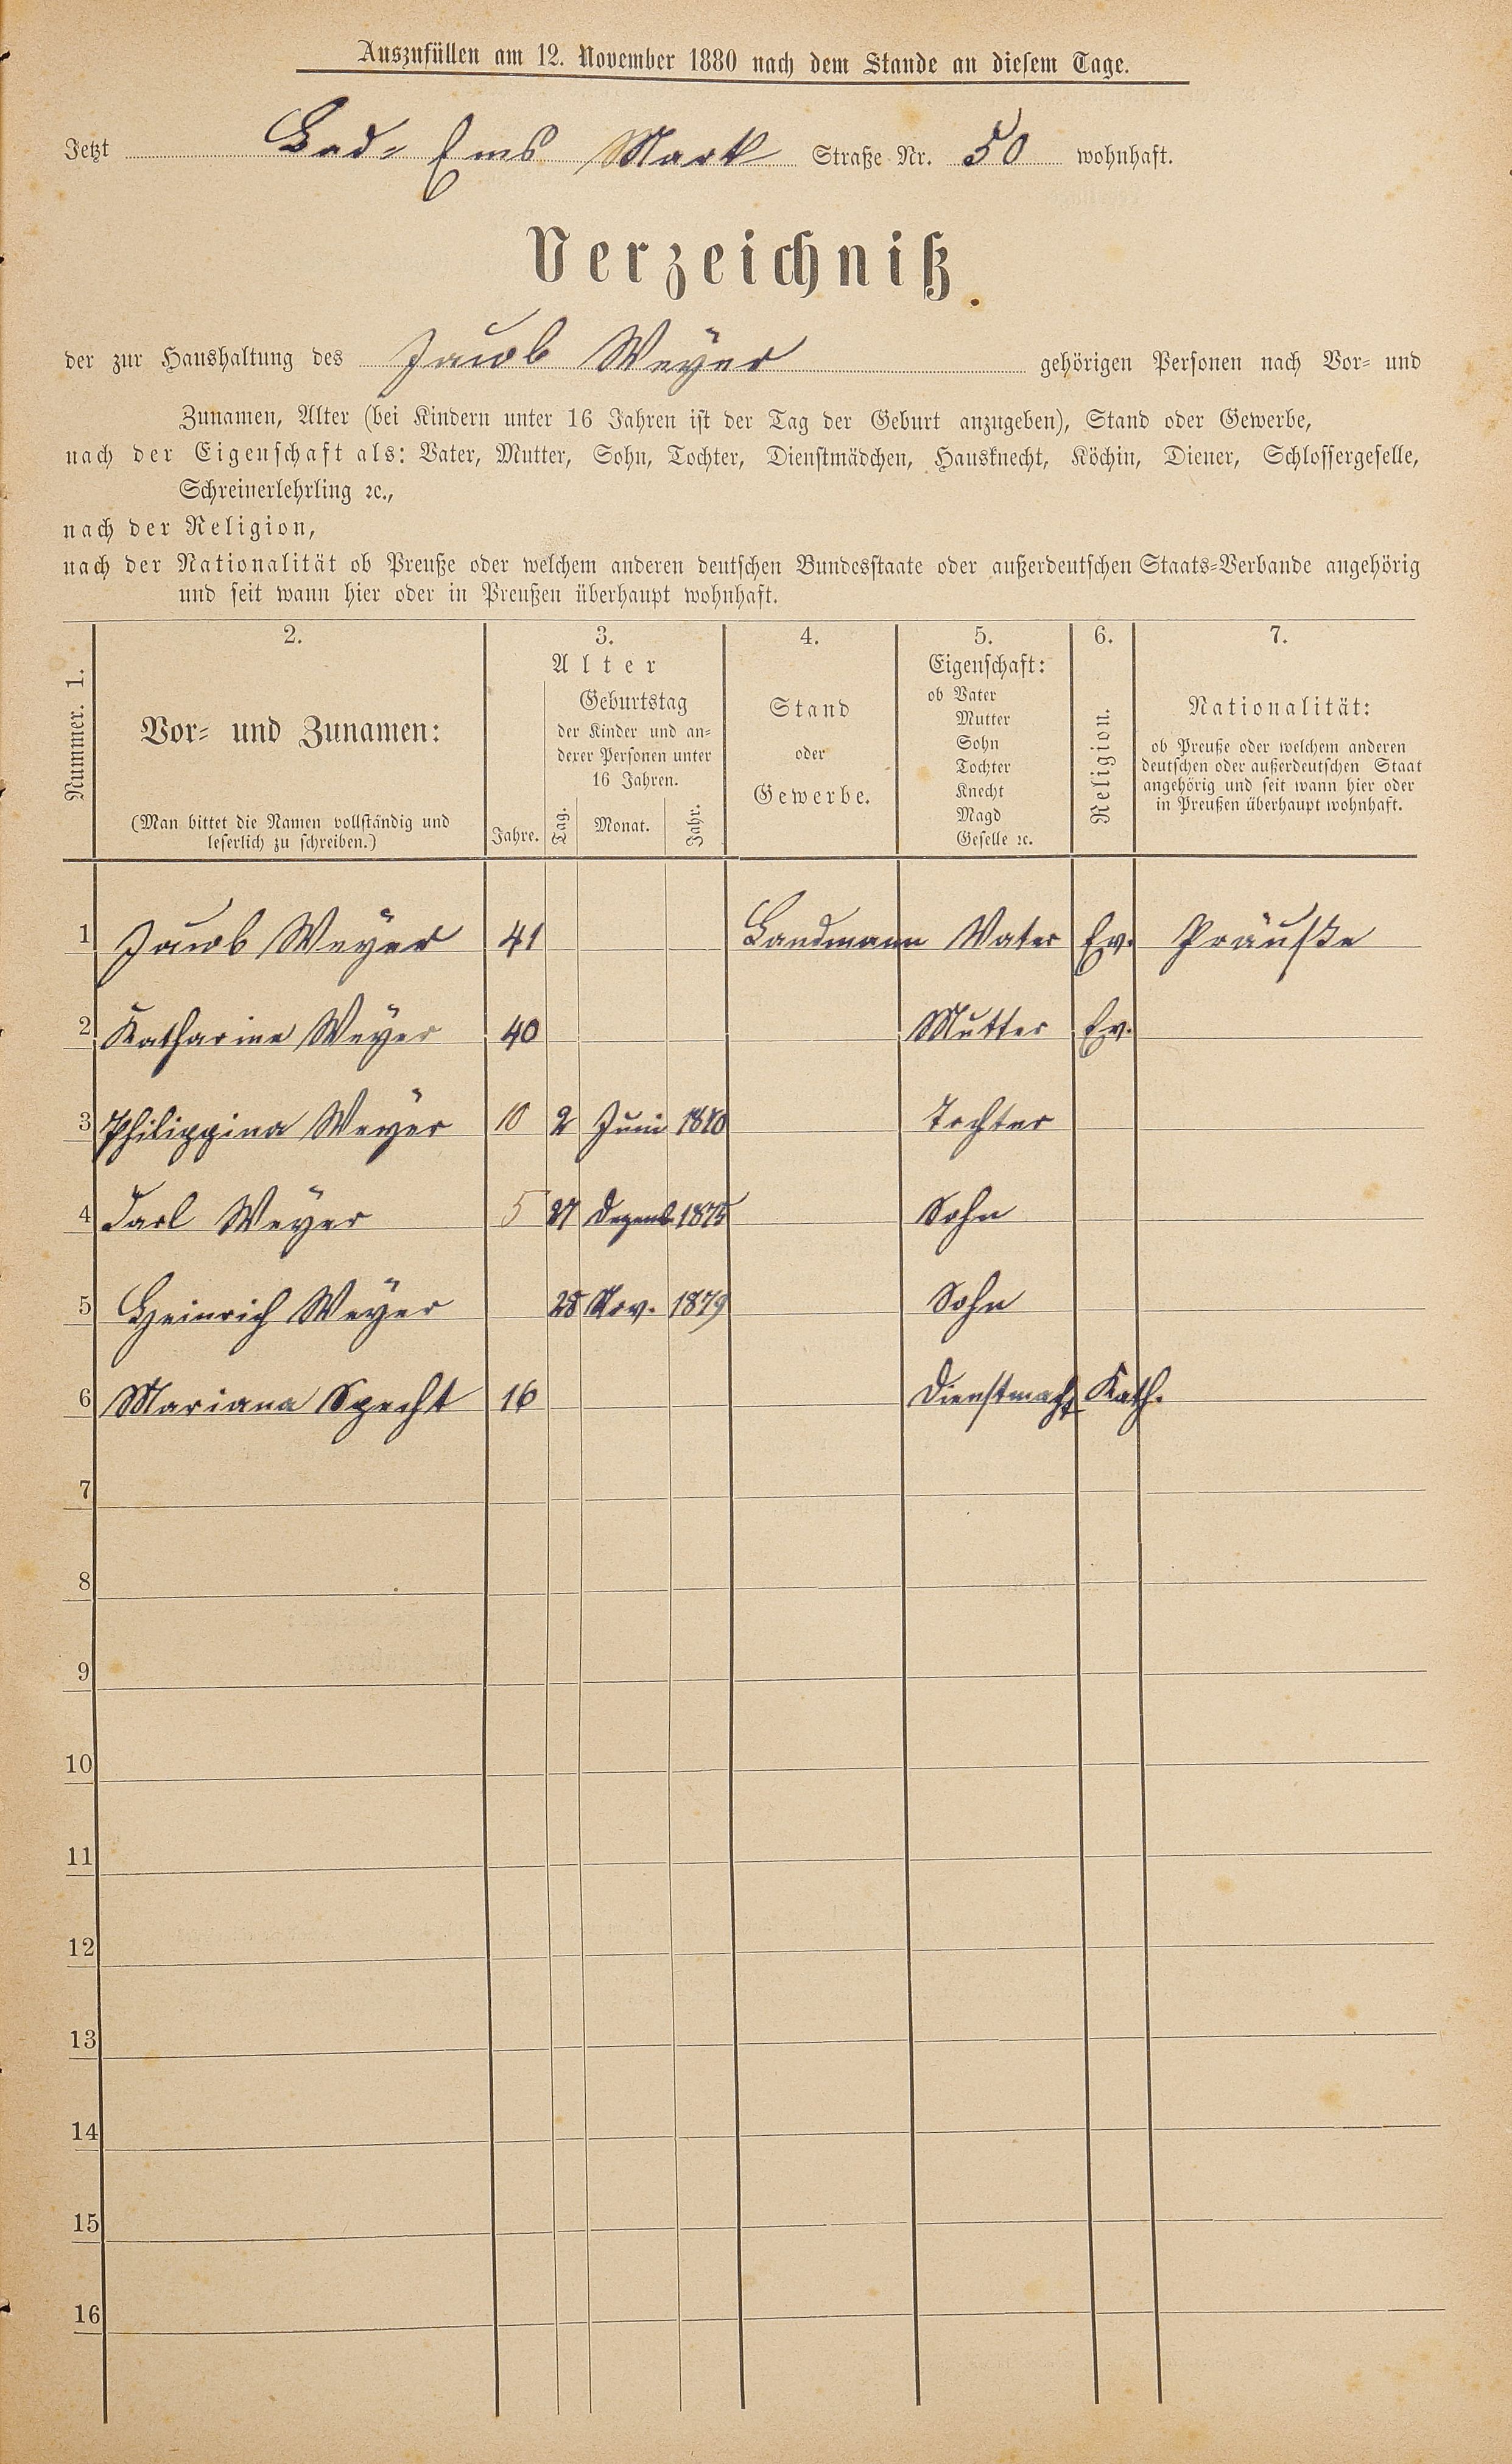 Auszufüllen am 12. November 1880 nach dem Stande an diesem Tage.
Jetzt Bad-Ems Mark Straße Nr. 50 wohnhaft.
Verzeichniß
der zur Haushaltung des Jacob Weyer gehörigen Personen nach Vor- und
Zunamen, Alter (bei Kindern unter 16 Jahren ist der Tag der Geburt anzugeben), Stand oder Gewerbe,
nach der Eigenschaft als: Vater, Mutter, Sohn, Tochter, Dienstmädchen, Hausknecht, Köchin, Diener, Schlossergeselle,
Schreinerlehrling ꝛc.,
nach der Religion,
nach der Nationalität ob Preuße oder welchem anderen deutschen Bundesstaate oder außerdeutschen Staats-Verbande angehörig
und seit wann hier oder in Preußen überhaupt wohnhaft.
Nummer. 1.
2.
Vor- und Zunamen:
(Man bittet die Namen vollständig und
leserlich zu schreiben.)
3.
Alter
Jahre.
Geburtstag
der Kinder und an-
derer Personen unter
16 Jahren.
Tag. Monat. Jahr.
4.
Stand
oder
Gewerbe.
5.
Eigenschaft:
ob Vater
Mutter
Sohn
Tochter
Knecht
Magd
Geselle ꝛc.
6.
Religion.
7.
Nationalität:
ob Preuße oder welchem anderen
deutschen oder außerdeutschen Staat
angehörig und seit wann hier oder
in Preußen überhaupt wohnhaft.
1 Jacob Weyer 41 Landmann Vater Ev. Präuße
2 Katharine Weyer 40 Mutter Ev.
3 Philippina Weyer 10 2 Juni Tochter
4 Carl Weyer 5 27 Dezemb. 1875 Sohn
5 Heinrich Weyer 28 Nov. 1879 Sohn
6 Mariana Specht 16 Kath.
7
8
9
10
11
12
13
14
15
16